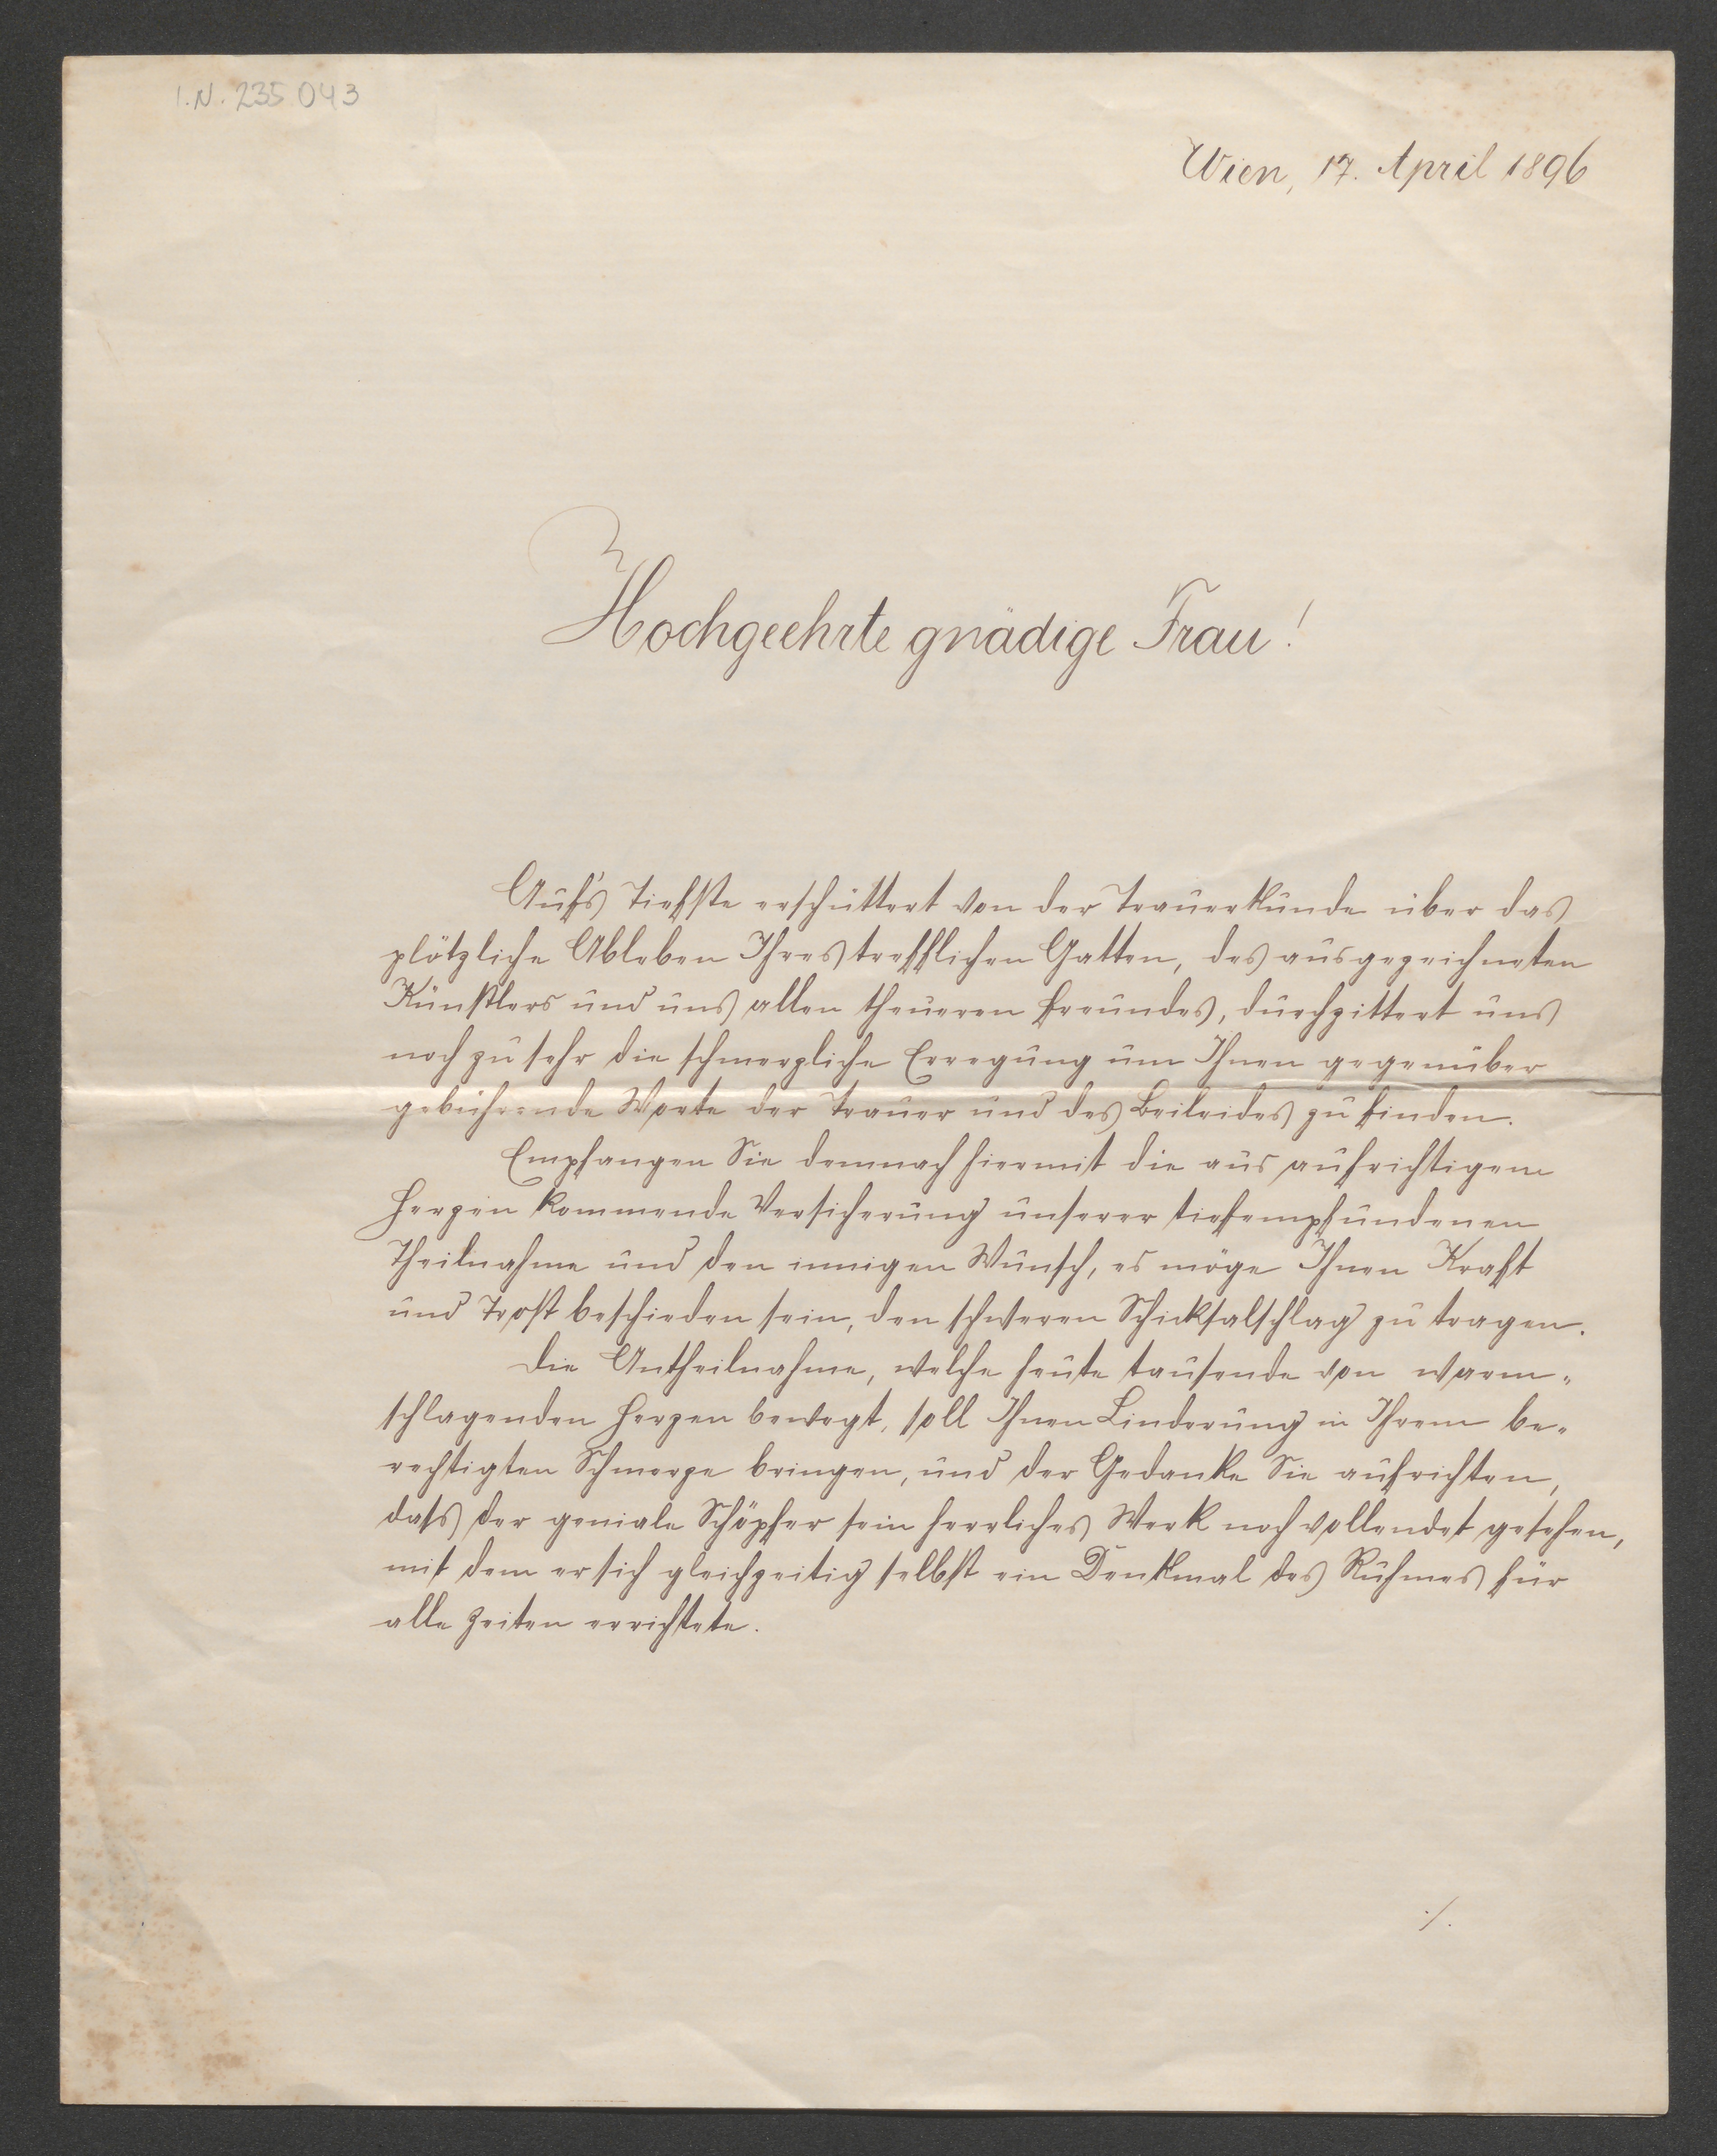 I.N. 235043
Wien, 17. April 1896
Hochgeehrte gnädige Frau!
Auf's Tiefste erschüttert von der Trauerkunde über das
plötzliche Ableben Ihres trefflichen Gatten, des ausgezeichneten
Künstlers und uns allen theueren Freundes, durchzittert uns
noch zu sehr die schmerzliche Erregung um Ihnen gegenüber
gebührende Worte der Trauer und des Beileides zu finden.
Empfangen Sie demnach hiermit die aus aufrichtigem
Herzen kommende Versicherung unserer tiefempfundenen
Theilnahme und den innigen Wunsch, es möge Ihnen Kraft
und Trost beschieden sein, den schweren Schicksalschlag zu tragen.
Die Antheilnahme, welche heute tausende von warm-
schlagenden Herzen bewegt, soll Ihnen Linderung in Ihrem be-
rechtigten Schmerze bringen, und der Gedanke Sie aufrichten,
dass der geniale Schöpfer sein herrliches Werk noch vollendet gesehen,
mit dem er sich gleichzeitig selbst ein Denkmal des Ruhmes für
alle Zeiten errichtete.
./.